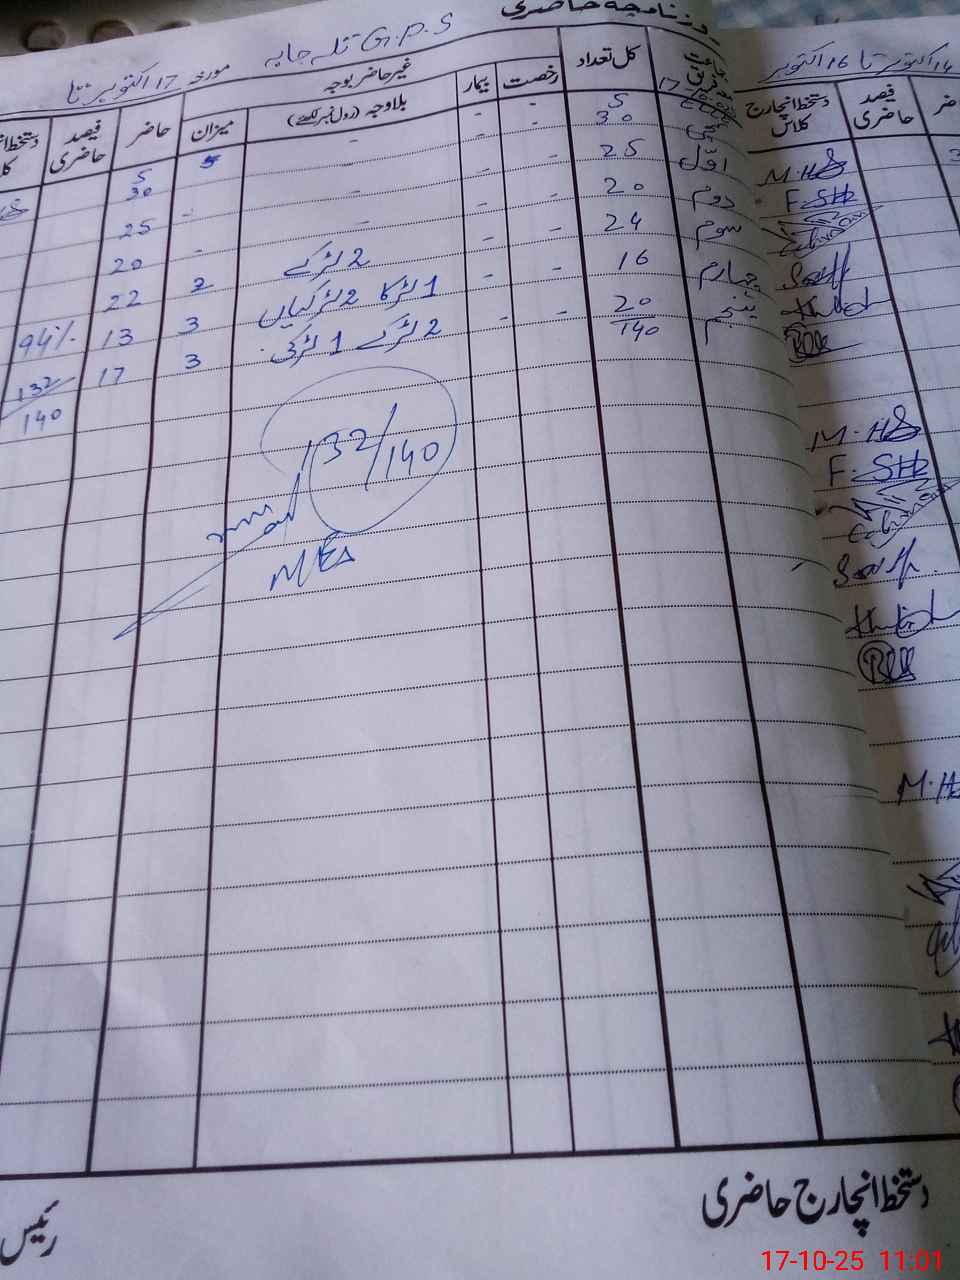 روزنامچہ حاضری
G.P.S تلہ جابہ مورخہ 17 اکتوبر تا
14 اکتوبر تا 16 اکتوبر
جماعت کل تعداد رخصت بیمار غیر حاضر بوجہ میزان حاضر فیصد حاضری دستخط
بلاوجہ (رول نمبر لکھئے)
دستخط انچارج کلاس فیصد حاضری
5 - - - 5
30 - - - 30
اوّل 25 - - - - 25
دوم 20 - - - - 20
سوم 24 - - 2 لڑکے 2 22
چہارم 16 - - 1 لڑکا 2 لڑکیاں 3 13 94%
پنجم 20 - - 2 لڑکے 1 لڑکی 3 17 132/140
140
132/140
MEA
M.HS
F.SHB
M.HS
F.SHB
M.H
دستخط انچارج حاضری
رئیس
17-10-25 11:01